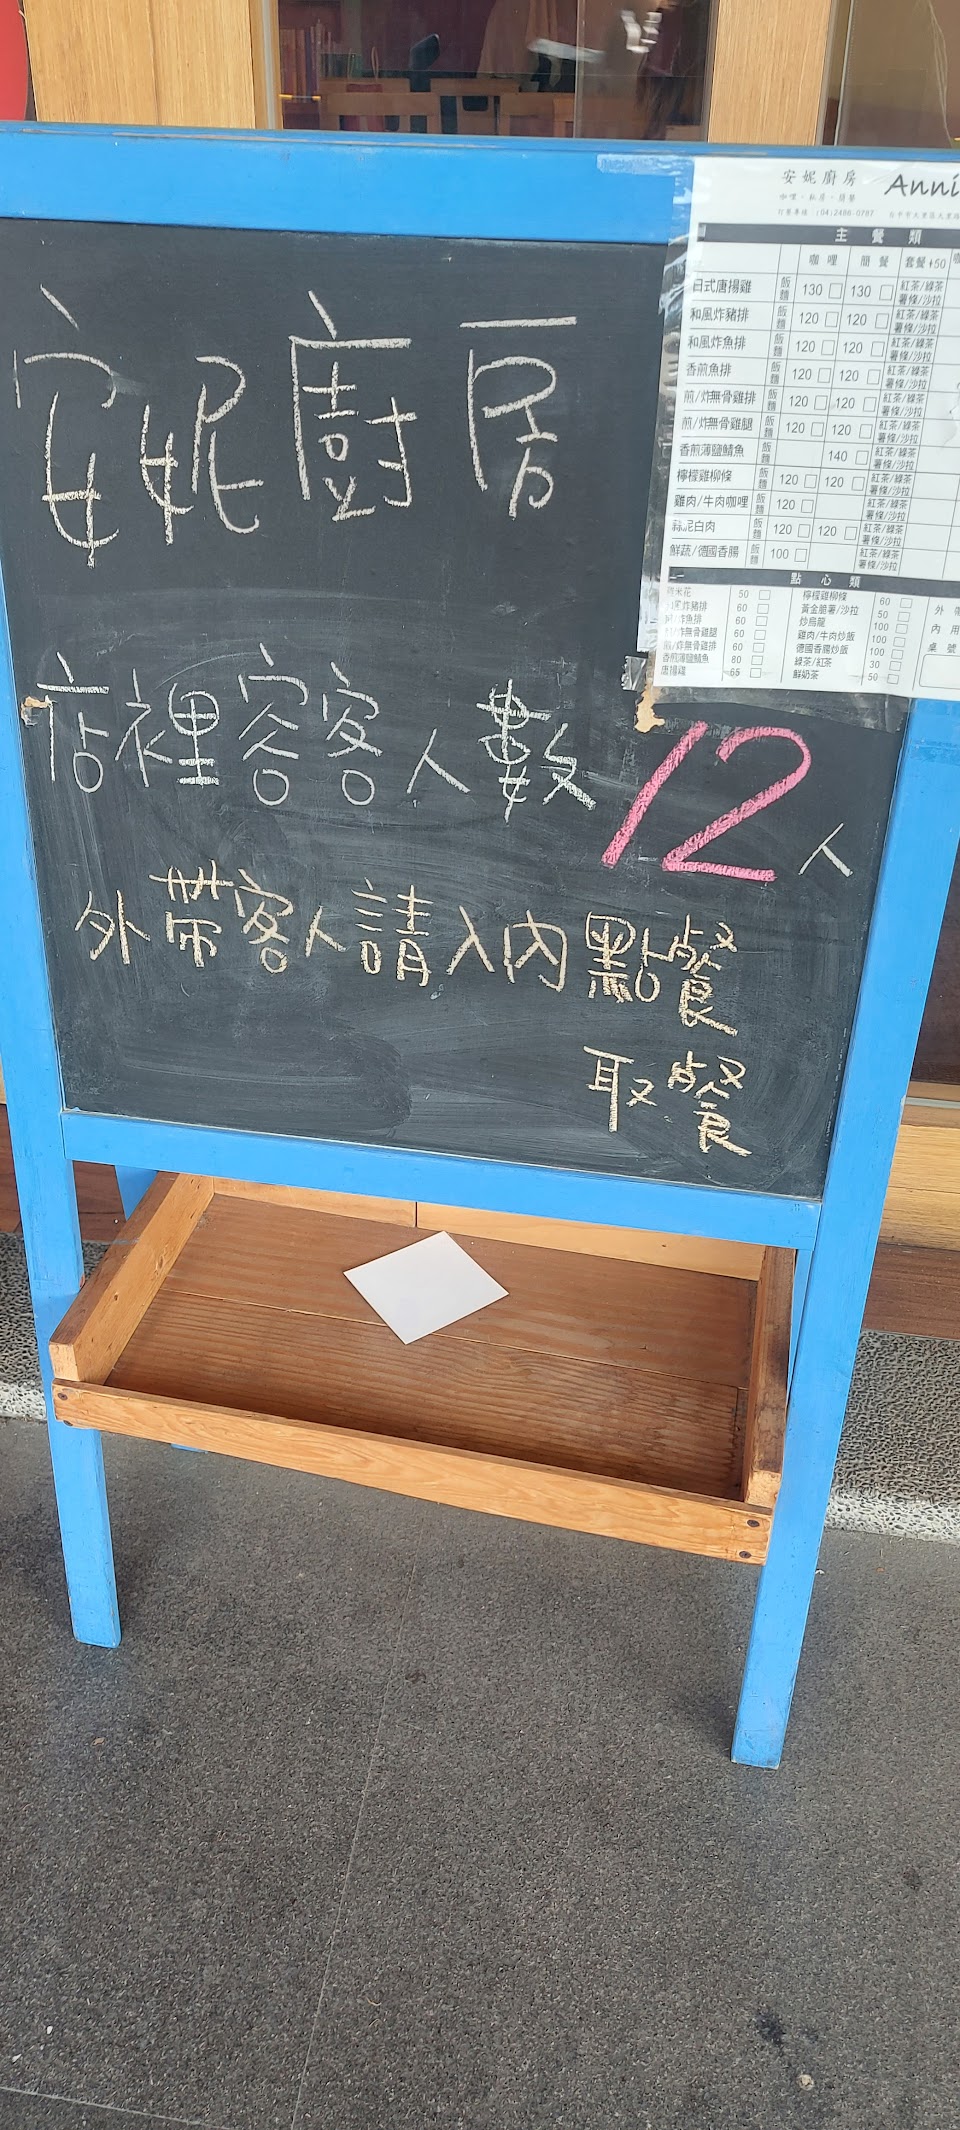 安妮廚房
店裡容客人數 12人
外帶客人請入內點餐
取餐
安妮廚房 Anni
咖哩、私房、簡餐
訂餐專線 (04)2486-0787
主餐類
咖哩 簡餐 套餐+50
日式唐揚雞 飯 麵 130 □ 130 □ 紅茶/綠茶 薯條/沙拉
和風炸豬排 飯 麵 120 □ 120 □ 紅茶/綠茶 薯條/沙拉
和風炸魚排 飯 麵 120 □ 120 □ 紅茶/綠茶 薯條/沙拉
香煎魚排 飯 麵 120 □ 120 □ 紅茶/綠茶 薯條/沙拉
煎/炸無骨雞排 飯 麵 120 □ 120 □ 紅茶/綠茶 薯條/沙拉
煎/炸無骨雞腿 飯 麵 120 □ 120 □ 紅茶/綠茶 薯條/沙拉
香煎薄鹽鯖魚 140 □ 紅茶/綠茶 薯條/沙拉
檸檬雞柳條 飯 麵 120 □ 120 □ 紅茶/綠茶 薯條/沙拉
雞肉/牛肉咖哩 飯 麵 120 □ 紅茶/綠茶 薯條/沙拉
蒜泥白肉 飯 麵 120 □ 120 □ 紅茶/綠茶 薯條/沙拉
鮮蔬/德國香腸 飯 麵 100 □ 紅茶/綠茶 薯條/沙拉
點心類
米花 50 □ 檸檬雞柳條 60 □
炸豬排 60 □ 黃金脆薯/沙拉 50 □
炸魚排 60 □ 炒烏龍 100 □
炸無骨雞腿 60 □ 雞肉/牛肉炒飯 100 □
煎/炸無骨雞排 60 □ 德國香腸炒飯 100 □
香煎薄鹽鯖魚 80 □ 綠茶/紅茶 30 □
唐揚雞 65 □ 鮮奶茶 50 □
外帶
內用
桌號